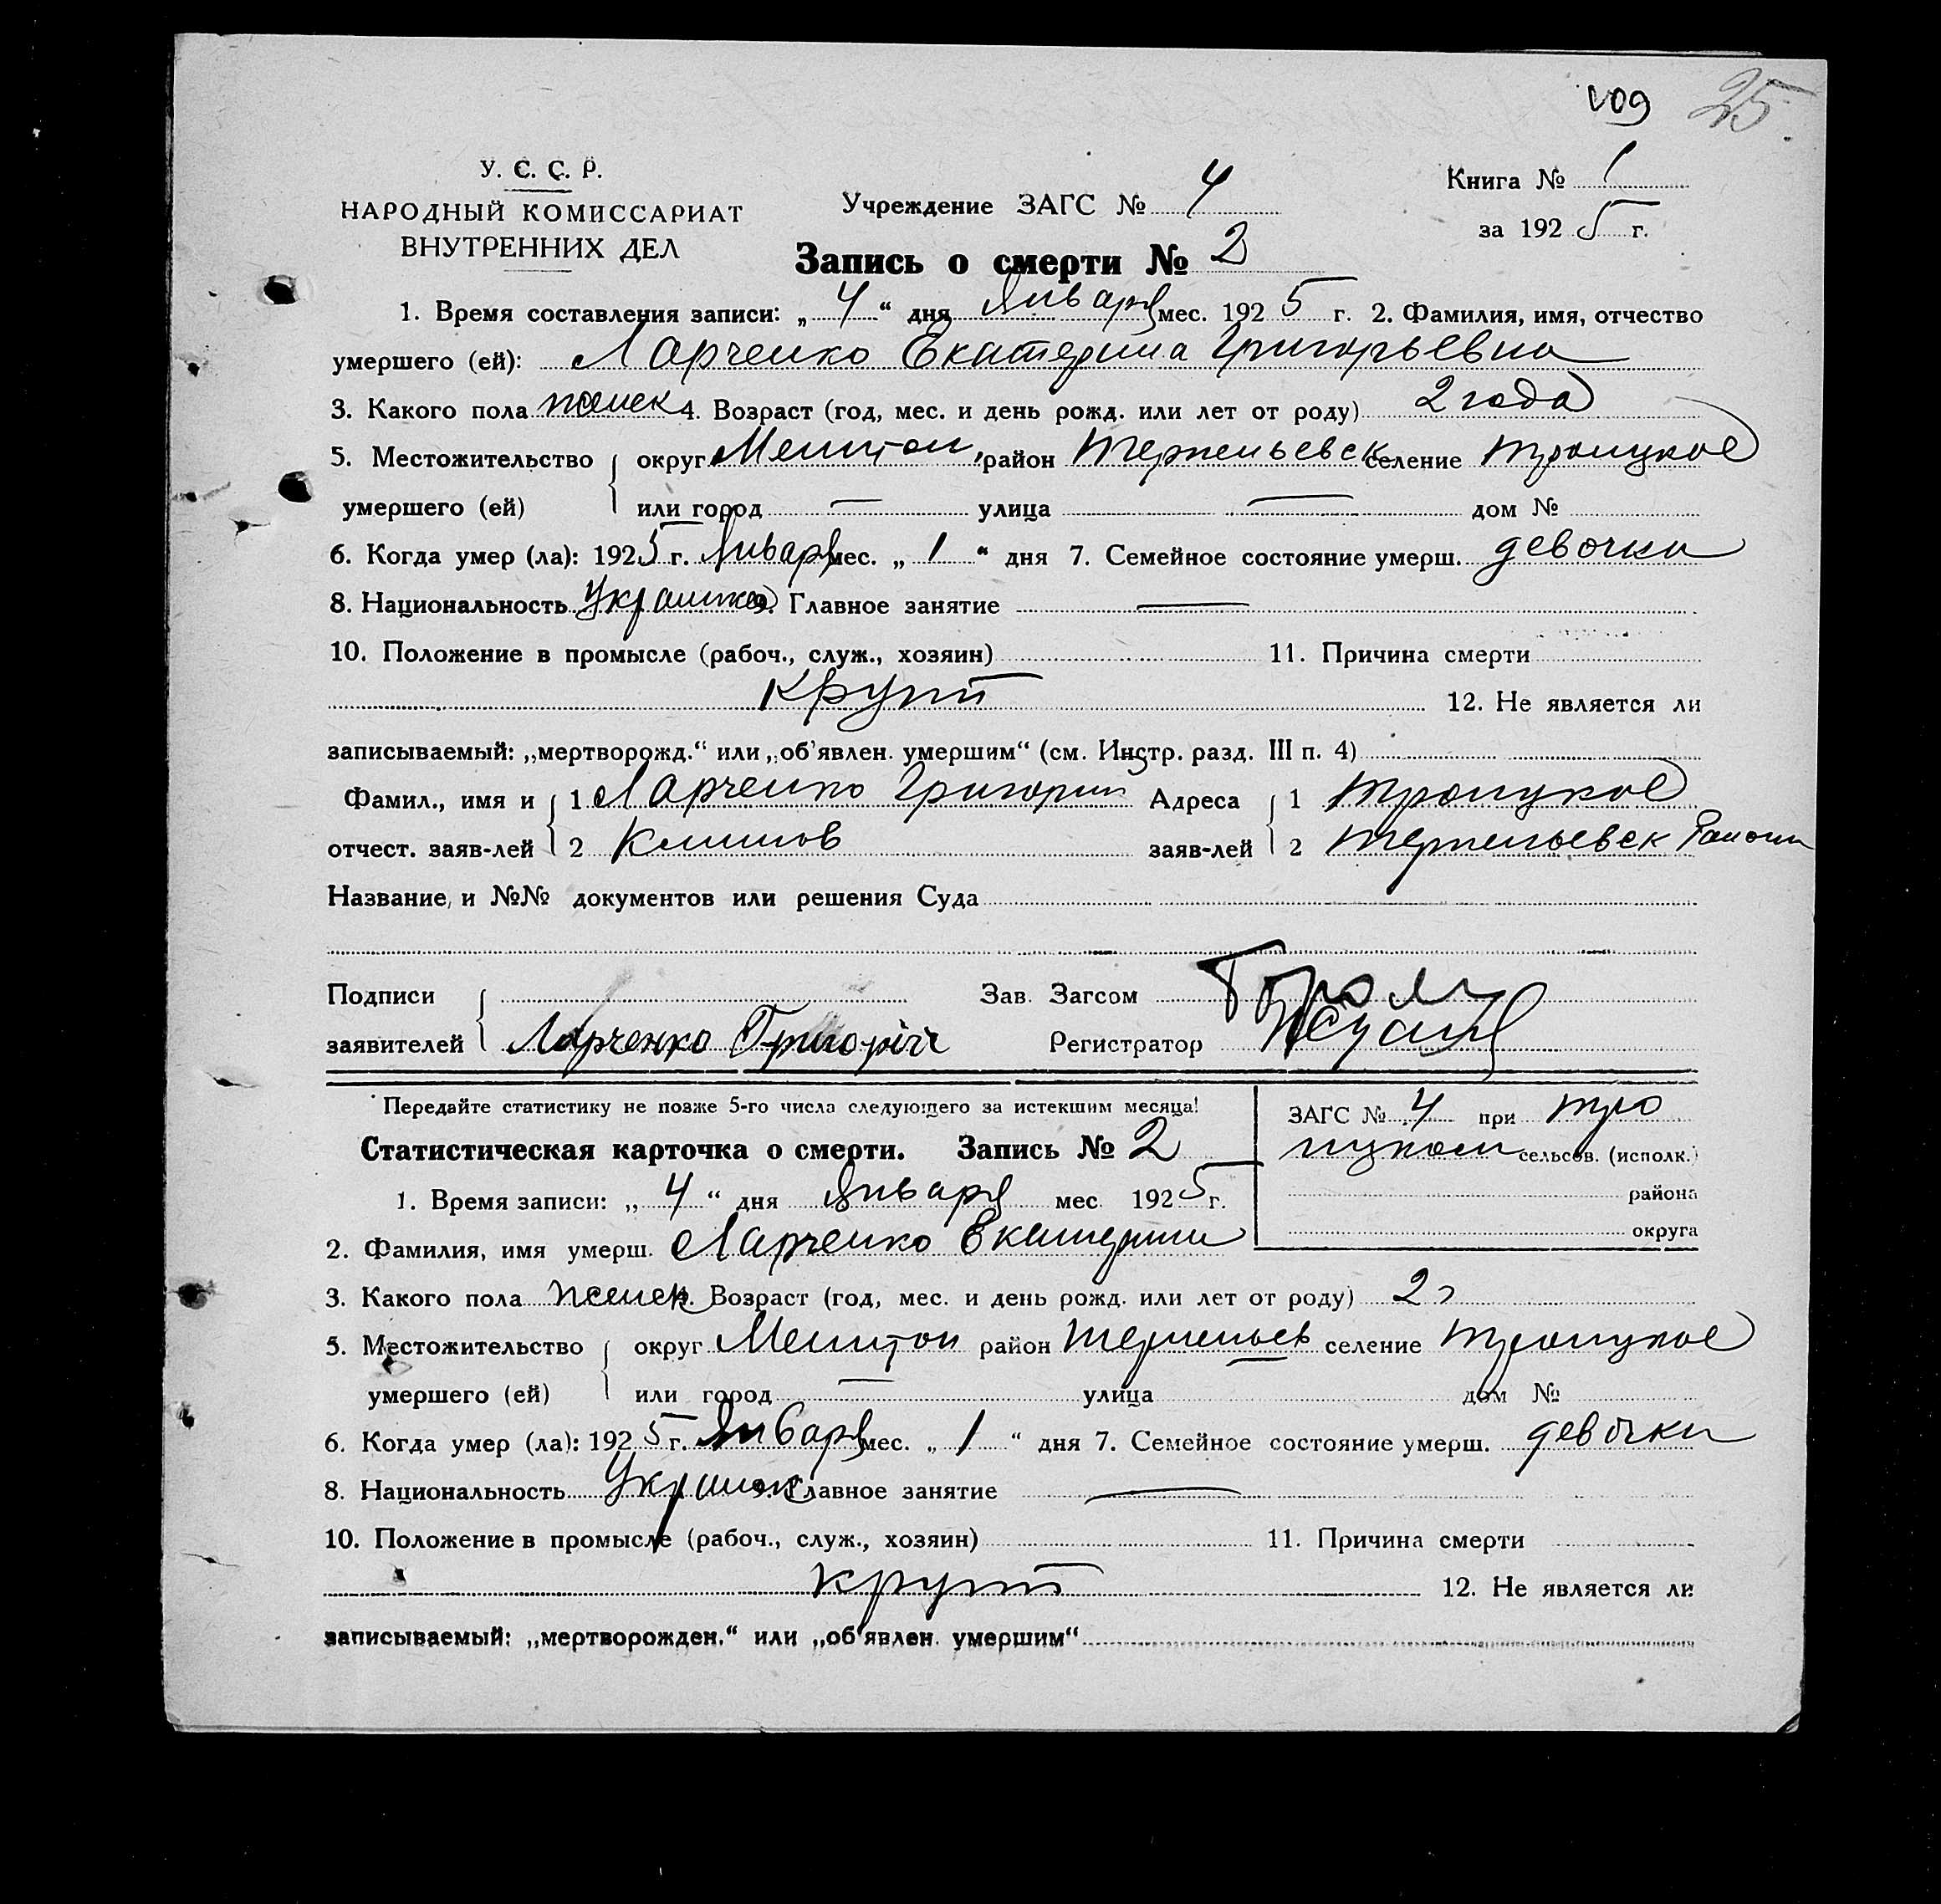 109 25.
У. С. С. Р.
НАРОДНЫЙ КОМИССАРИАТ
ВНУТРЕННИХ ДЕЛ
Учреждение ЗАГС № 4
Книга № 1
за 1925 г.
Запись о смерти № 2
1. Время составления записи: „4“ дня Января мес. 1925 г. 2. Фамилия, имя, отчество
умершего (ей): Ларченко Екатерина Григорьевна
3. Какого пола женск 4. Возраст (год, мес. и день рожд. или лет от роду) 2 года
5. Местожительство округ Мелитоп, район Терпеньевск селение Троицкое
умершего (ей) или город — улица — дом №
6. Когда умер (ла): 1925 г. Января мес. „1“ дня 7. Семейное состояние умерш. девочка
8. Национальность Украинка 9. Главное занятие —
10. Положение в промысле (рабоч., служ., хозяин) 11. Причина смерти
круп 12. Не является ли
записываемый: „мертворожд.“ или „об'явлен. умершим“ (см. Инстр. разд. III п. 4)
Фамил., имя и 1 Ларченко Григорий Адреса 1 Троицкое
отчест. заяв-лей 2 Климов заяв-лей 2 Терпеньевск Район
Название, и №№ документов или решения Суда
Подписи Зав. Загсом
заявителей Ларченко Григорій Регистратор
Передайте статистику не позже 5-го числа следующего за истекшим месяца!
Статистическая карточка о смерти. Запись № 2
ЗАГС № 4 при Тро
ицком сельсов. (исполк.)
района
округа
1. Время записи: „4“ дня Января мес 1925 г.
2. Фамилия, имя умерш. Ларченко Екатерина
3. Какого пола женск. Возраст (год, мес. и день рожд. или лет от роду) 2 г
5. Местожительство округ Мелитоп район Терпеньев селение Троицкое
умершего (ей) или город — улица дом №
6. Когда умер (ла): 1925 г. Января мес. „1“ дня 7. Семейное состояние умерш. девочка
8. Национальность Украинк 9. Главное занятие —
10. Положение в промысле (рабоч., служ., хозяин) 11. Причина смерти
круп 12. Не является ли
записываемый: „мертворожден.“ или „об'явлен. умершим“